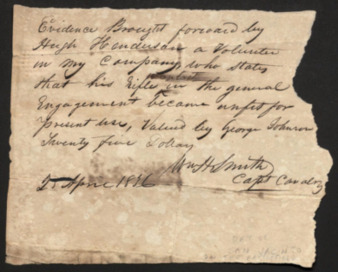 Evidence Brought forward by
Hugh Henderson a Volunteer
in my Company who States
that his Rifle in the general
Engagement became unfit for
present use, Valued by George Johnson
Twenty five Dollars
Wm H Smith
April Capt Cavalry